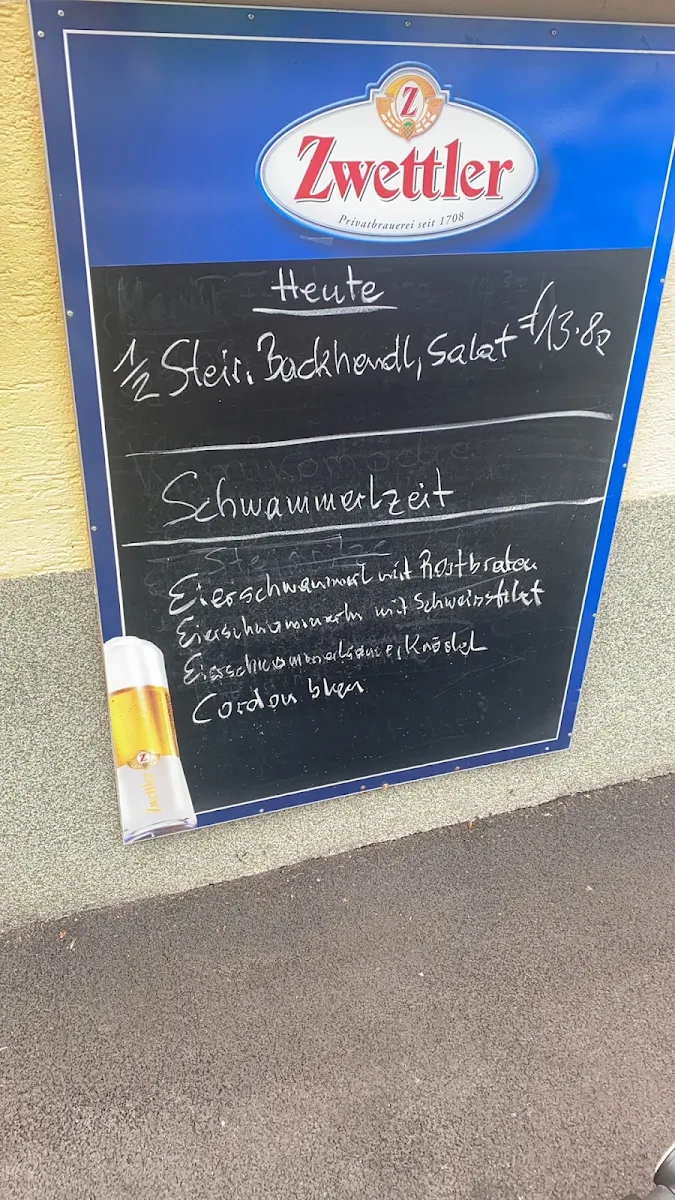 Z
Zwettler
Privatbrauerei seit 1708
Heute
1/2 Steir. Backhendl, Salat €13.80
Schwammerlzeit
Eierschwammerl mit Rostbraten
Eierschwammerln mit Schweinsfilet
Eierschwammerlsauce, Knödel
Cordon bleu
Z
Zwettler